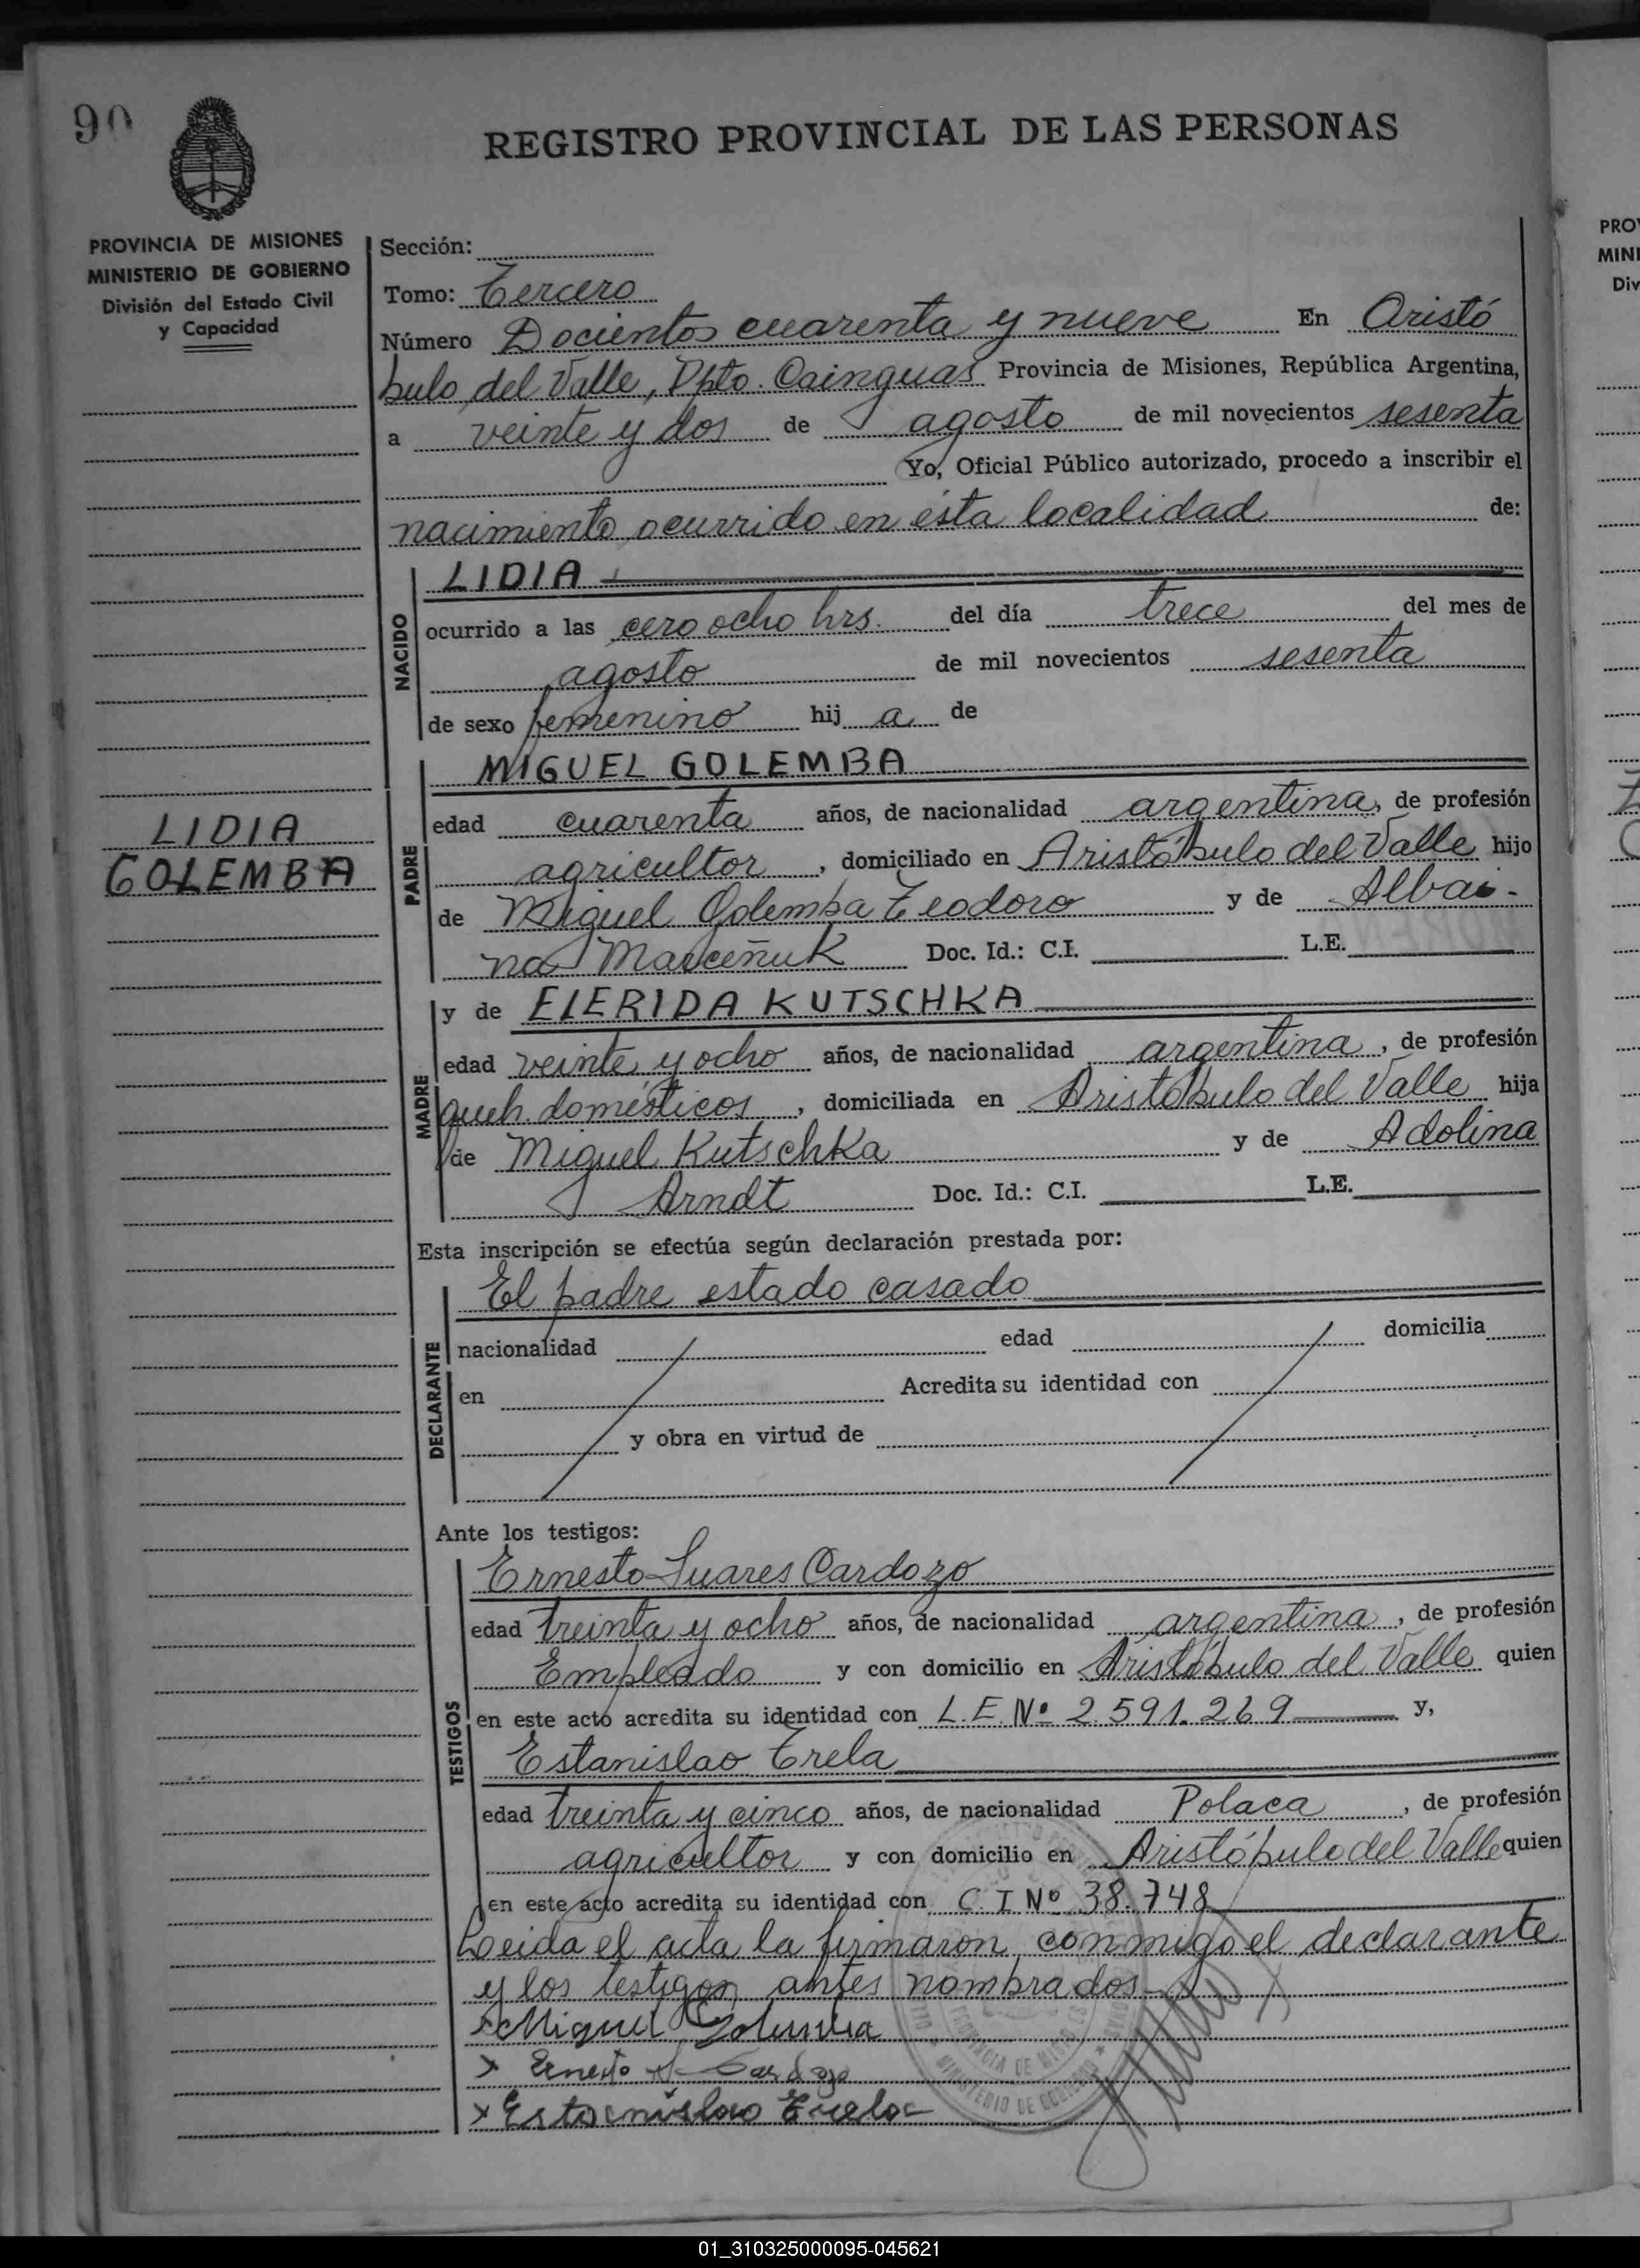 90
REGISTRO PROVINCIAL DE LAS PERSONAS
PROVINCIA DE MISIONES
MINISTERIO DE GOBIERNO
División del Estado Civil
y Capacidad
Sección:
Tomo: Tercero
Número Docientos cuarenta y nueve En Aristó
bulo del Valle, Dpto. Cainguas Provincia de Misiones, República Argentina,
a veinte y dos de agosto de mil novecientos sesenta
Yo, Oficial Público autorizado, procedo a inscribir el
nacimiento ocurrido en ésta localidad de:
NACIDO
LIDIA
ocurrido a las cero ocho hrs. del día trece del mes de
agosto de mil novecientos sesenta
de sexo femenino hij a de
LIDIA
GOLEMBA
PADRE
MIGUEL GOLEMBA
edad cuarenta años, de nacionalidad argentina, de profesión
agricultor, domiciliado en Aristóbulo del Valle hijo
de Miguel Golemba Teodoro y de Albai-
na Marceñuk Doc. Id.: C.I. L.E.
MADRE
y de ELERIDA KUTSCHKA
edad veinte y ocho años, de nacionalidad argentina, de profesión
queh. domésticos, domiciliada en Aristóbulo del Valle hija
de Miguel Kutschka y de Adolina
Arndt Doc. Id.: C.I. L.E.
Esta inscripción se efectúa según declaración prestada por:
DECLARANTE
El padre estado casado
nacionalidad edad domicilia
en Acredita su identidad con
y obra en virtud de
Ante los testigos:
TESTIGOS
Ernesto Suares Cardozo
edad treinta y ocho años, de nacionalidad argentina, de profesión
Empleado y con domicilio en Aristóbulo del Valle quien
en este acto acredita su identidad con L.E. Nº 2.591.269 y,
Estanislao Trela
edad treinta y cinco años, de nacionalidad Polaca, de profesión
agricultor y con domicilio en Aristóbulo del Valle quien
en este acto acredita su identidad con C.I Nº 38.748
Leida el acta la firmaron conmigo el declarante
y los testigos antes nombrados
x Miguel Golemba
x Ernesto S. Cardozo
x Estanislao Trela
MINISTERIO DE GOBIERNO
PROVINCIA DE MISIONES
01_310325000095-045621